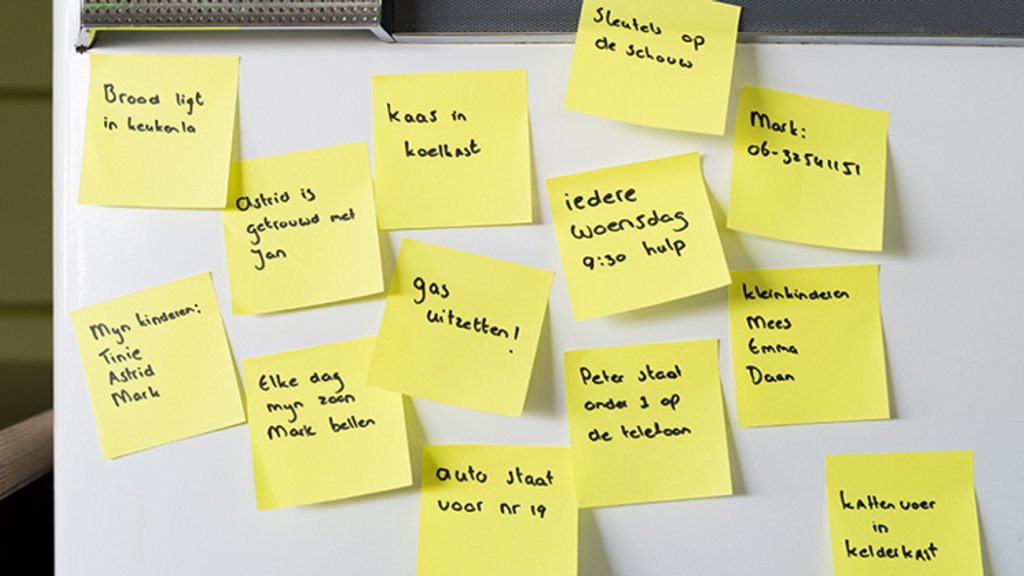 Sleutels op
de schouw
Brood ligt
in keukenla
kaas in
koelkast
Mark:
06-32541151
Astrid is
getrouwd met
Jan
iedere
woensdag
9:30 hulp
Mijn kinderen:
Tinie
Astrid
Mark
gas
uitzetten!
kleinkinderen
Mees
Emma
Daan
Elke dag
mijn zoon
Mark bellen
Peter staat
onder 1 op
de telefoon
auto staat
voor nr 19
kattenvoer
in
kelderkast